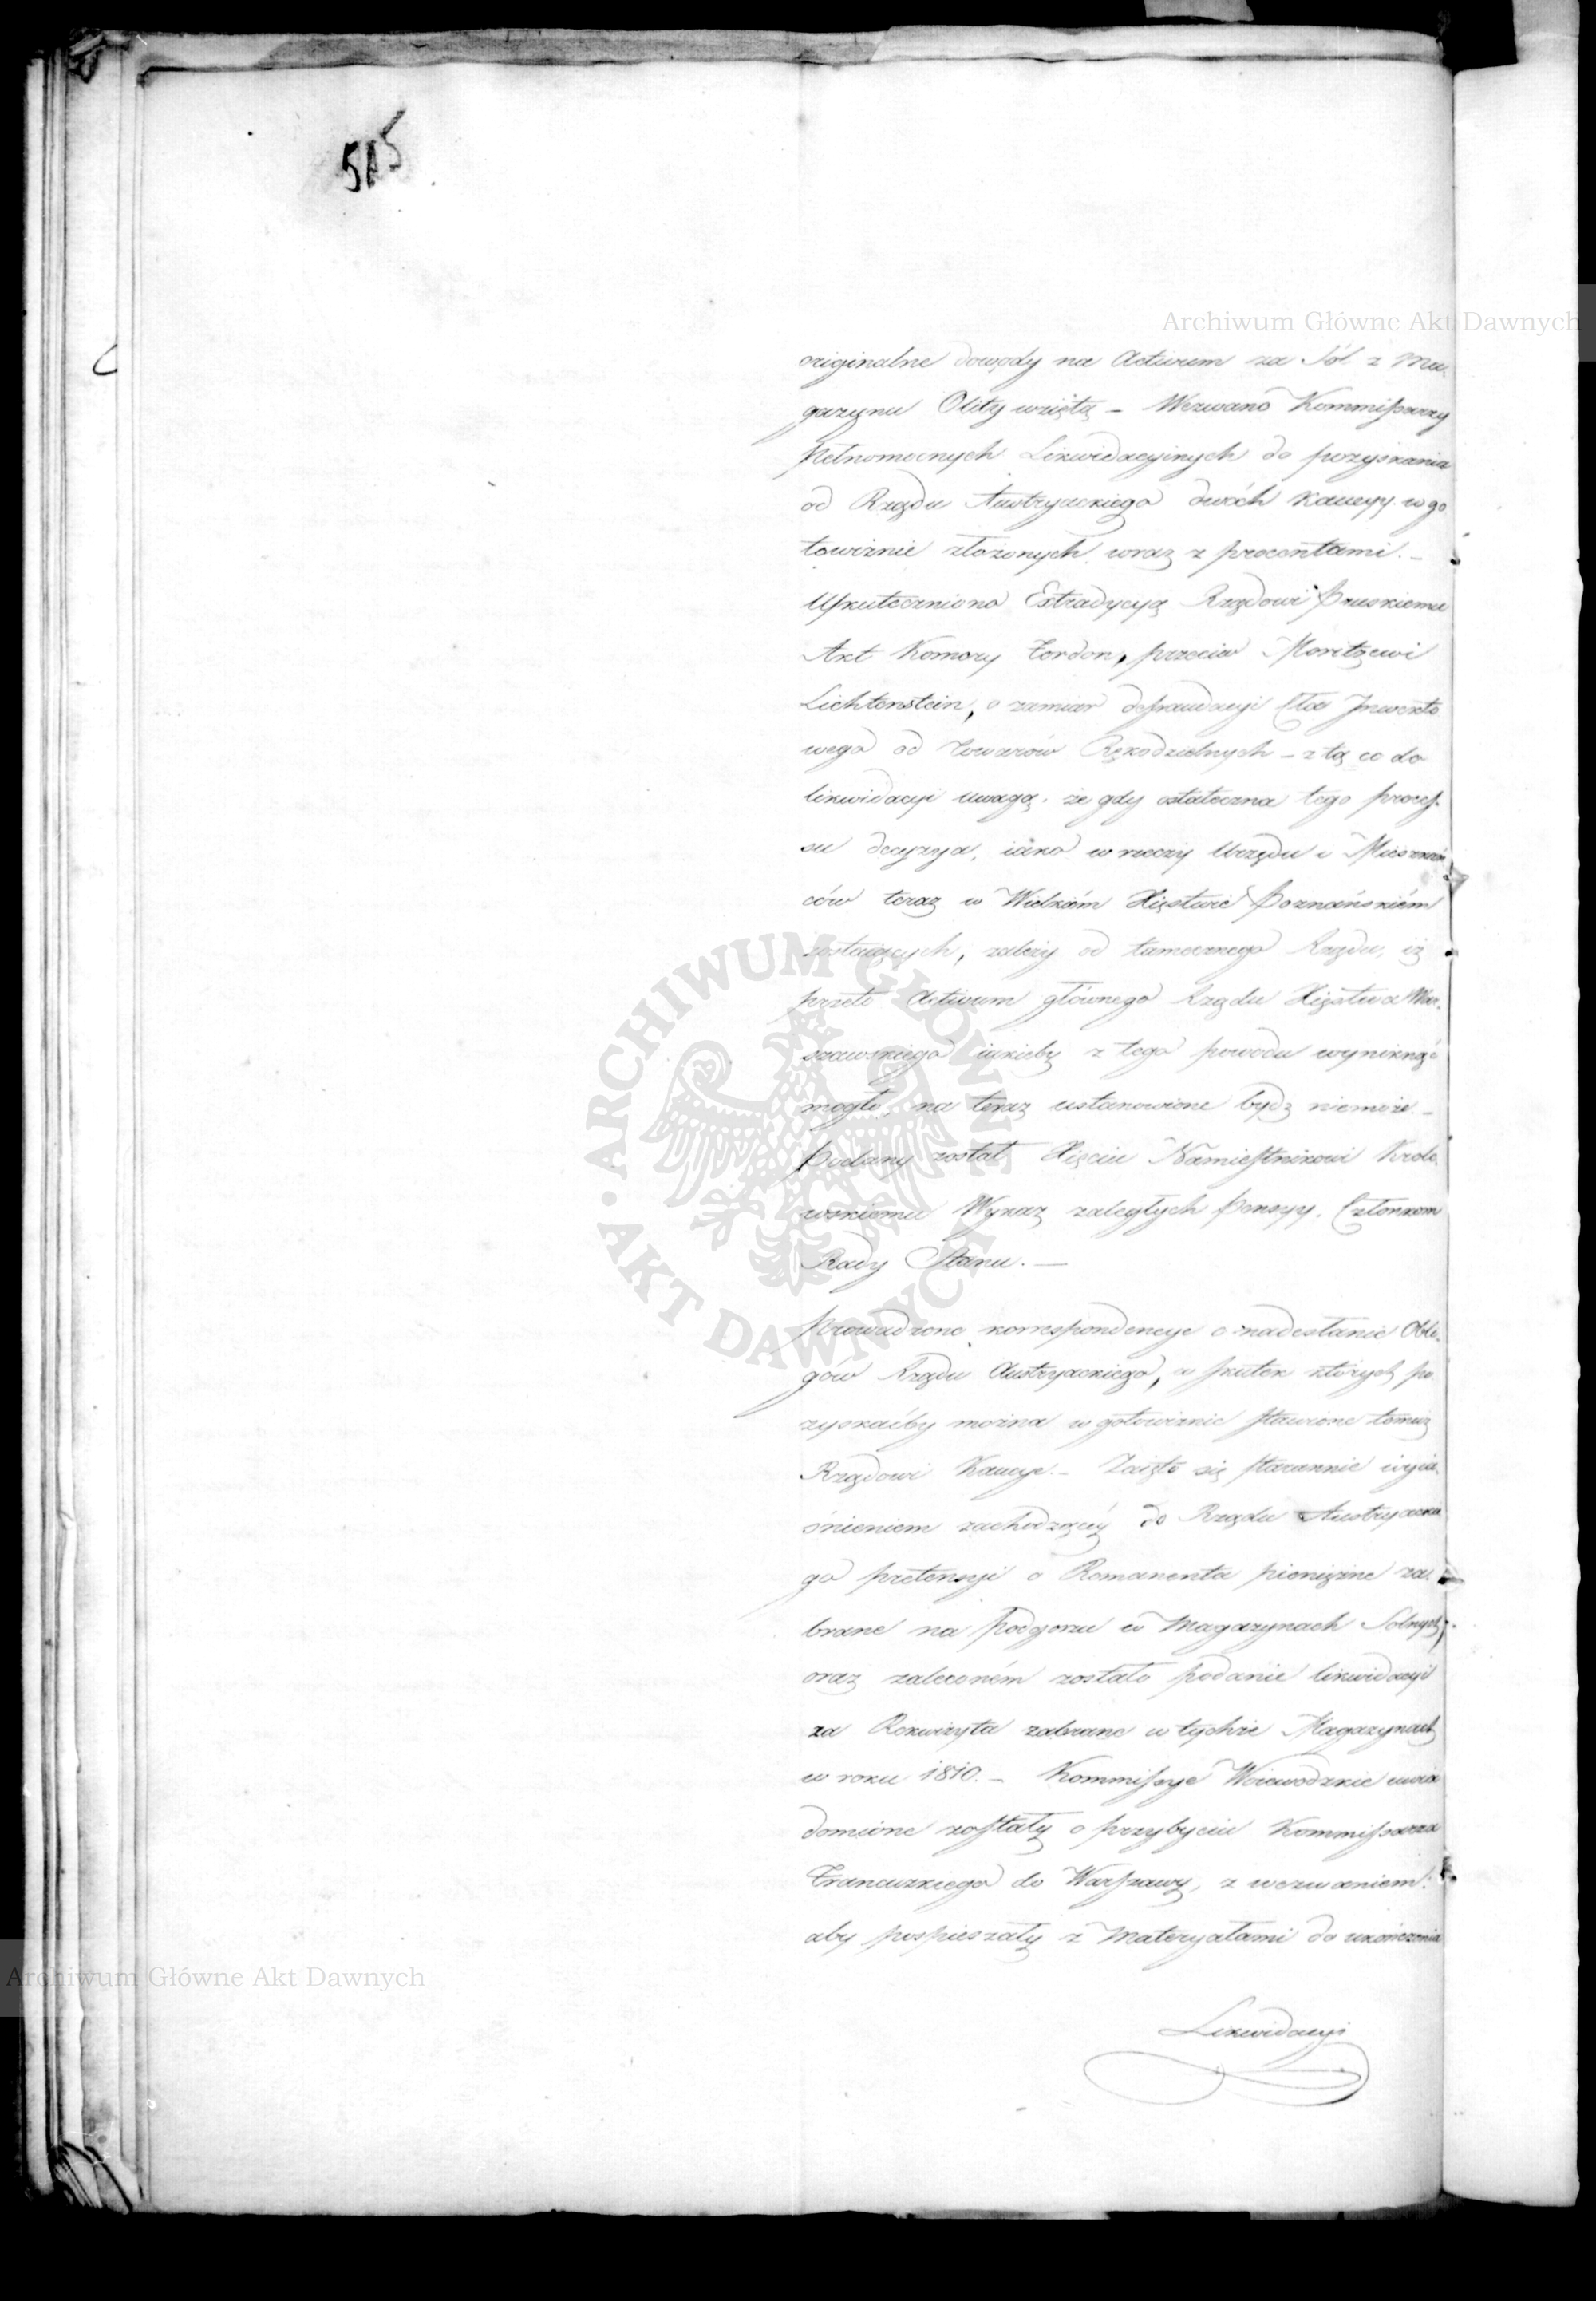 515
Archiwum Główne Akt Dawnych
originalne dowody na Activum za Sól z Ma-
gazynu Olity wziętą – Wezwano Kommissarzy
Pełnomocnych Likwidacyinych do pozyskania
od Rządu Austryackiego dwóch Kaucyy w go
towiznie złożonych wraz z procentami. –
Uskuteczniono Extradycyą Rządowi Pruskiemu
Akt Komory Fordon, przeciw Moritzewi
Lichtenstein, o zamiar defraudacyi Cła Inwekto
wego od Towarów Rękodzielnych – z tą co do
likwidacyi uwagą, że gdy ostateczna tego proces-
su decyzya, iako w rzeczy Urzędu i Mieszkań
ców teraz w Wielkiém Xięstwie Poznańskiém
zostaiących, zależy od tamecznego Rządu, iż
przeto Activum głównego Rządu Xięstwa War-
szawskiego iakieby z tego powodu wyniknąć
mogło, na teraz ustanowione bydz niemoże. –
Podany został Xięciu Namiestnikowi Krole-
wskiemu Wykaz zaległych Pensyy Członkom
Rady Stanu. –
Prowadzono korrespondencye o nadesłanie Obli-
gów Rządu Austryackiego, w skutek których po
zyskaćby można w gotowiznie stawione temuz
Rządowi Kaucye. – Zaięto się starannie wyia-
śnieniem zachodzącéy do Rządu Austryackie
go pretensyi o Romanenta pieniężne za-
brane na Podgorzu w Magazynach Solnych,
oraz zaleconém zostało podanie likwidacyi
za Rekwizyta zabrane w tychże Magazynach
w roku 1810. – Kommissye Woiewodzkie uwia
domione zostały o przybyciu Kommissarza
Francuzkiego do Warszawy, z wezwaniem:
aby pospieszały z Materyałami do ukończenia
Likwidacyi
ARCHIWUM GŁÓWNE · AKT DAWNYCH ·
Archiwum Główne Akt Dawnych